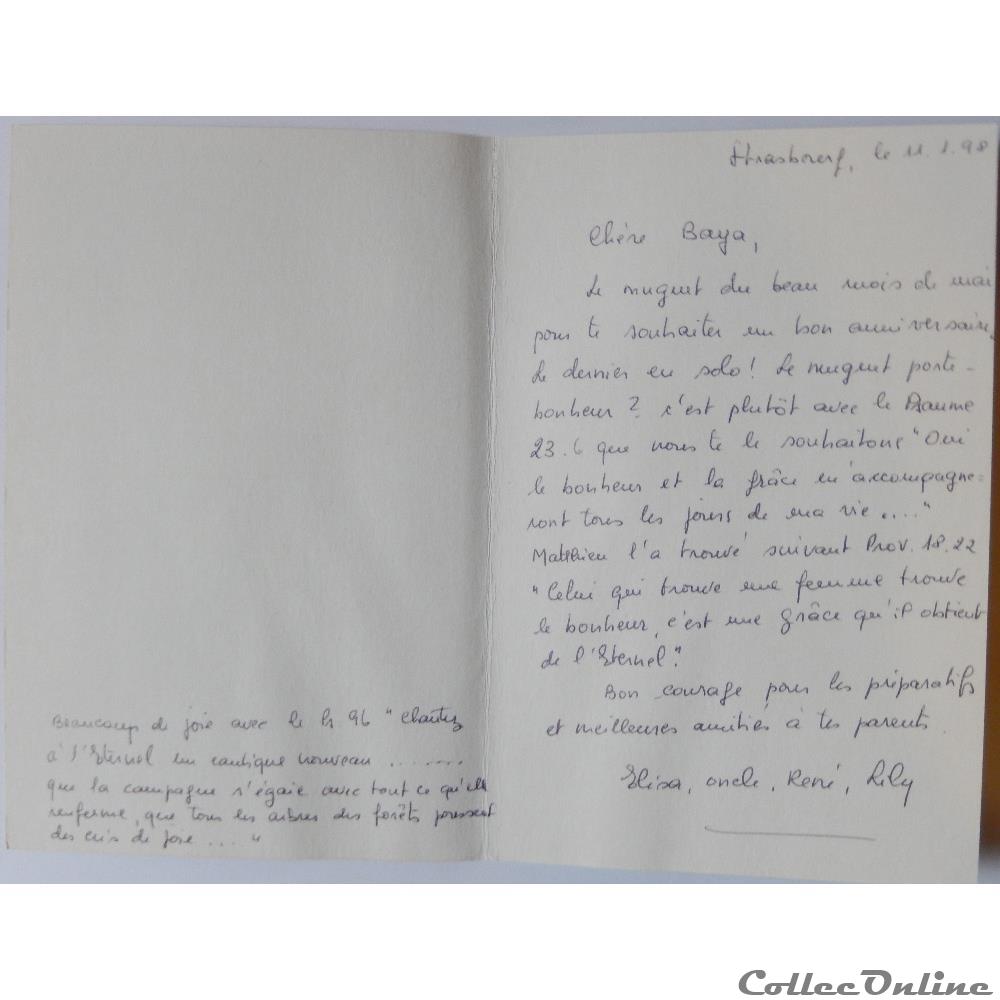 Strasbourg, le 11.1.98
Chère Baya,
Le muguet du beau mois de mai
pour te souhaiter un bon anniversaire,
Le dernier en solo! Le muguet porte-
bonheur? c'est plutôt avec le Psaume
23.6 que nous te le souhaitons "Oui
le bonheur et la grâce m'accompagne-
ront tous les jours de ma vie ...."
Matthieu l'a trouvé suivant Prov. 18.22
"Celui qui trouve une femme trouve
le bonheur, c'est une grâce qu'il obtient
de l'Eternel".
Bon courage pour les préparatifs
et meilleures amitiés à tes parents.
Elisa, oncle, René, Lily
Beaucoup de joie avec le Ps. 96 "Chantez
à l'Eternel un cantique nouveau .......
que la campagne s'égaie avec tout ce qu'elle
renferme, que tous les arbres des forêts poussent
des cris de joie ... "
CollecOnline